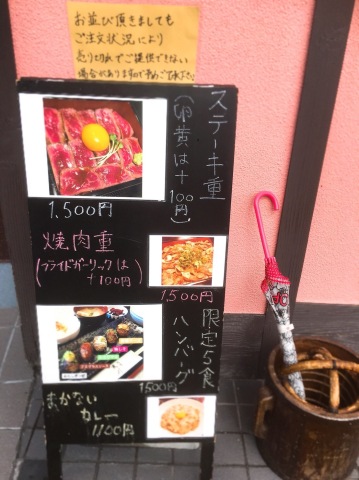 お並び頂きましても
ご注文状況により
売り切れでご提供できない
場合がありますので予めご了承下さい
ステーキ重
(卵黄は+100円)
1,500円
焼肉重
(フライドガーリックは
+100円)
1500円
限定5食
ハンバーグ
1500円
まかない
カレー
1100円